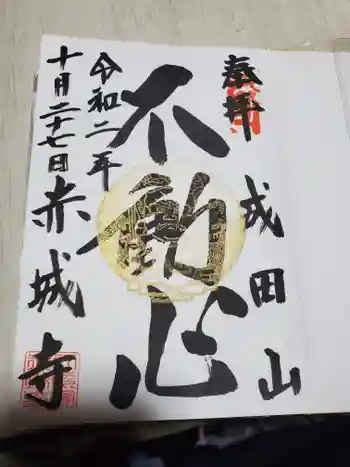 奉拝 成田山
不動心
令和二年
十月二十七日 赤城寺